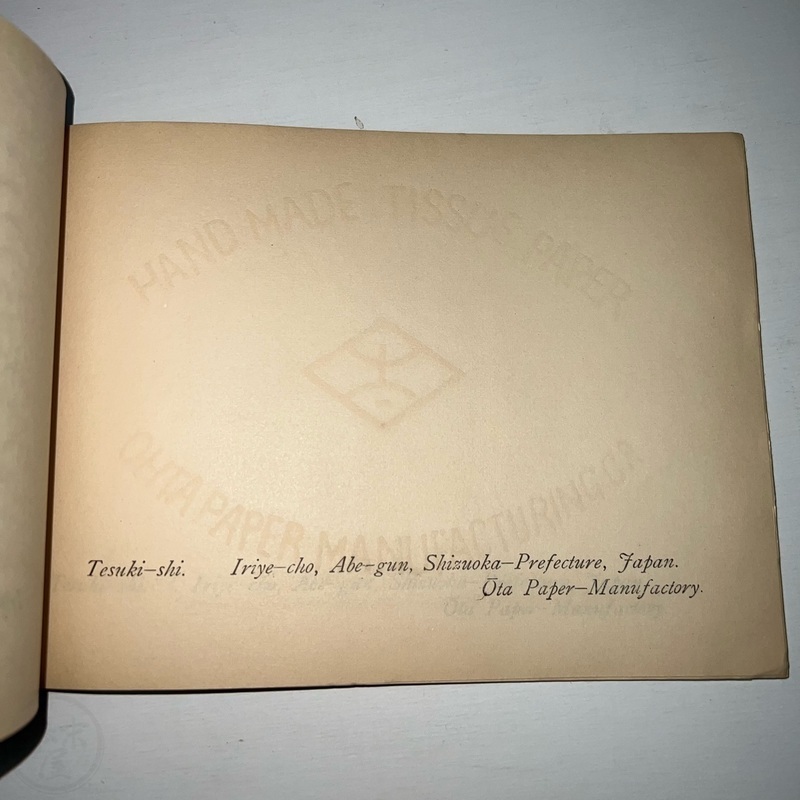 HAND MADE TISSUE PAPER
OHTA PAPER MANUFACTURING Co
Tesuki–shi. Iriye–cho, Abe–gun, Shizuoka–Prefecture, Japan.
Ōta Paper–Manufactory.
Ōta Paper–Manufactory